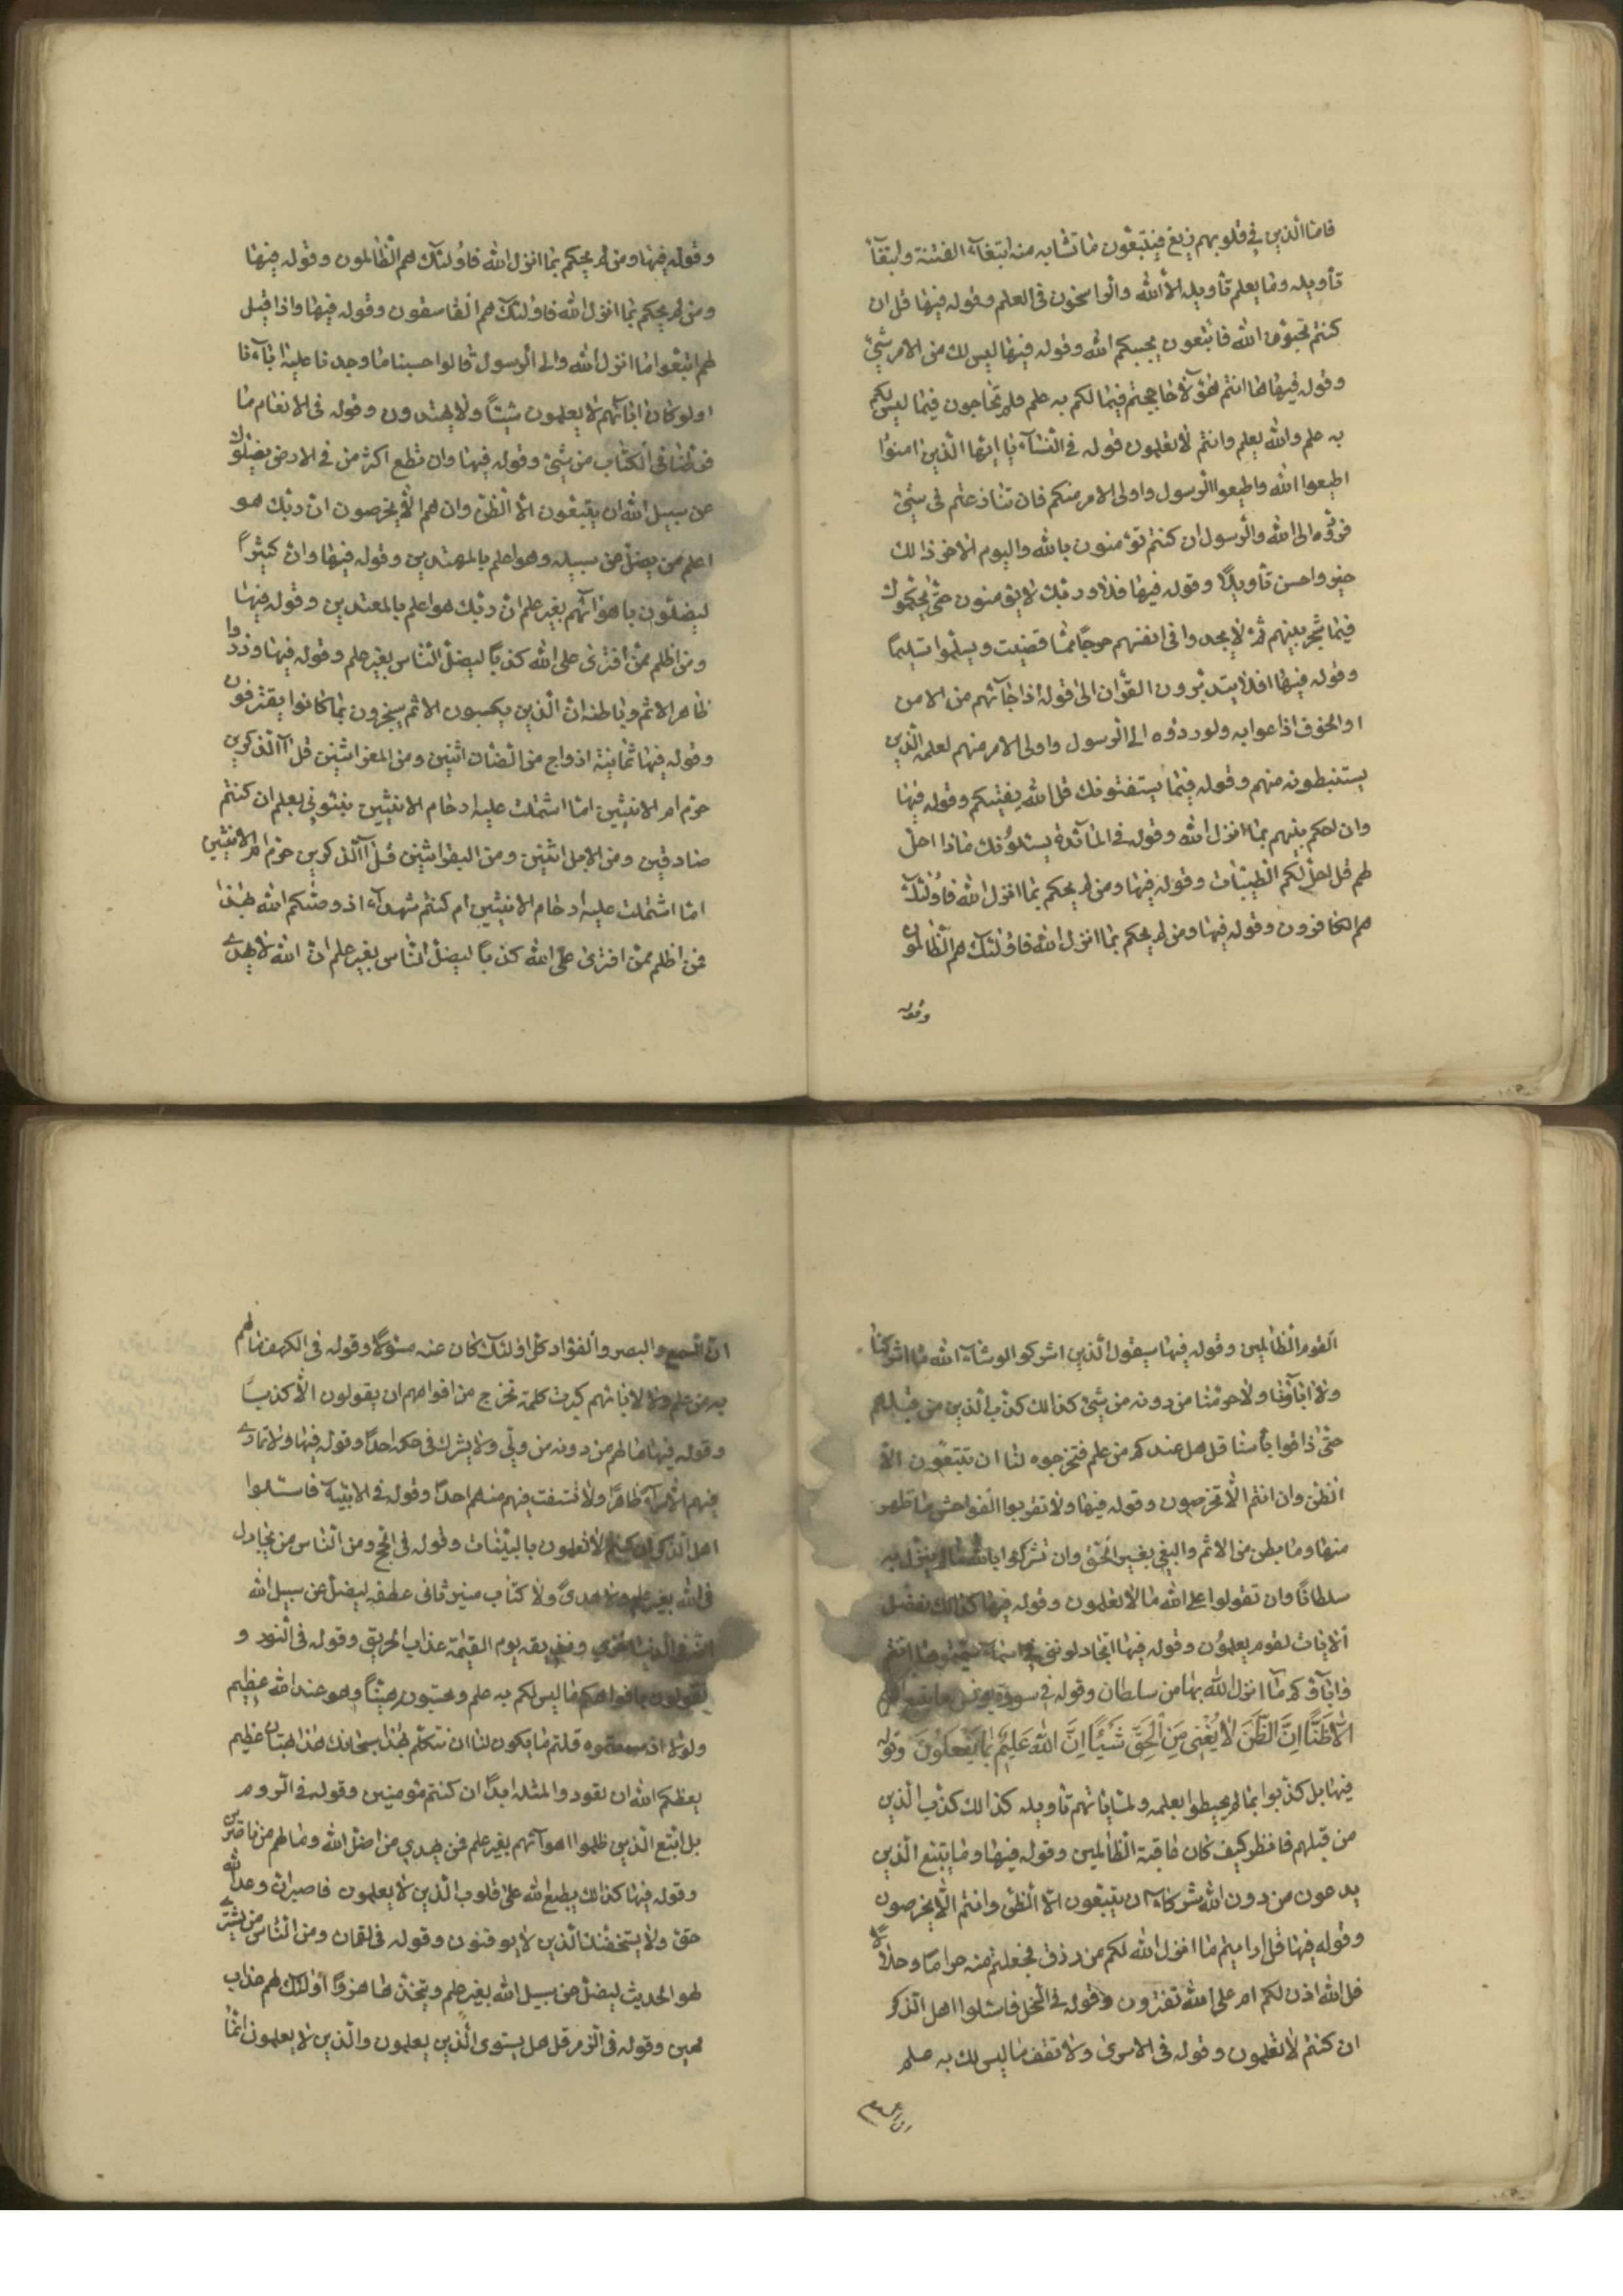 فاما الذين في قلوبهم زيغ فيتبعون ما تشابه منه ابتغاء الفتنة وابتغآء
تأويله وما يعلم تأويله الا الله والراسخون في العلم وقوله فيها قل ان
كنتم تحبون الله فاتبعون يحببكم الله وقوله فيها ليس لك من الامر شئ
وقوله فيها ها انتم هؤلآء حاججتم فيما لكم به علم فلم تحاجون فيما ليس لكم
به علم والله يعلم وانتم لا تعلمون قوله في النسآء يا ايها الذين امنوا
اطيعوا الله واطيعوا الرسول واولى الامر منكم فان تنازعتم في شئ
فردوه الى الله والرسول ان كنتم تؤمنون بالله واليوم الاخر ذالك
خير واحسن تأويلا وقوله فيها فلا وربك لا يؤمنون حتى يحكموك
فيما شجر بينهم ثم لا يجدوا في انفسهم حرجا مما قضيت ويسلموا تسليما
وقوله فيها افلا يتدبرون القرآن الى قوله اذا جآئهم من الامن
او الخوف اذاعوا به ولو ردوه الى الرسول واولى الامر منهم لعلمه الذين
يستنبطونه منهم وقوله فيما يستفتونك قل الله يفتيكم وقوله فيها
وان احكم بينهم بما انزل الله وقوله في المآئدة يسئلونك ماذا احل
لهم قل احل لكم الطيبات وقوله فيها ومن لم يحكم بما انزل الله فاولئك
هم الكافرون وقوله فيها ومن لم يحكم بما انزل الله فاولئك هم الظالمون
وقوله
وقوله فيها ومن لم يحكم بما انزل الله فاولئك هم الظالمون وقوله فيها
ومن لم يحكم بما انزل الله فاولئك هم الفاسقون وقوله فيها واذا قيل
لهم اتبعوا ما انزل الله والى الرسول قالوا حسبنا ما وجدنا عليه ابآءنا
اولو كان ابآئهم لا يعلمون شيئا ولا يهتدون وقوله في الانعام ما
فرطنا في الكتاب من شئ وقوله فيها وان تطع اكثر من في الارض يضلوك
عن سبيل الله ان يتبعون الا الظن وان هم الا يخرصون ان ربك هو
اعلم من يضل عن سبيله وهو اعلم بالمهتدين وقوله فيها وان كثيرا
ليضلون باهوائهم بغير علم ان ربك هو اعلم بالمعتدين وقوله فيها
ومن اظلم ممن افترى على الله كذبا ليضل الناس بغير علم وقوله فيها وذروا
ظاهر الاثم وباطنه ان الذين يكسبون الاثم سيجزون بما كانوا يقترفون
وقوله فيها ثمانية ازواج من الضان اثنين ومن المعز اثنين قل آالذكرين
حرم ام الانثيين اما اشتملت عليه ارحام الانثيين نبئوني بعلم ان كنتم
صادقين ومن الابل اثنين ومن البقر اثنين قل آالذكرين حرم ام الانثيين
اما اشتملت عليه ارحام الانثيين ام كنتم شهدآء اذ وصيكم الله بهذا
فمن اظلم ممن افترى على الله كذبا ليضل الناس بغير علم ان الله لا يهدي
القوم الظالمين وقوله فيها سيقول الذين اشركوا لو شآء الله ما اشركنا
ولا ابآؤنا ولا حرمنا من دونه من شئ كذالك كذب الذين من قبلهم
حتى ذاقوا بأسنا قل هل عندكم من علم فتخرجوه لنا ان تتبعون الا
الظن وان انتم الا تخرصون وقوله فيها ولا تقربوا الفواحش ما ظهر
منها وما بطن من الاثم والبغي بغير الحق وان تشركوا بالله ما لم ينزل به
سلطانا وان تقولوا على الله ما لا تعلمون وقوله فيها كذالك نفصل
الايات لقوم يعلمون وقوله فيها اتجادلونني في اسمآء سميتموها انتم
وابآؤكم ما انزل الله بها من سلطان وقوله في سورة يونس وما يتبع اكثرهم
الا ظنا ان الظن لا يغني من الحق شيئا ان الله عليم بما يفعلون وقوله
فيها بل كذبوا بما لم يحيطوا بعلمه ولما ياتهم تأويله كذالك كذب الذين
من قبلهم فانظر كيف كان عاقبة الظالمين وقوله فيها وما يتبع الذين
يدعون من دون الله شركآء ان يتبعون الا الظن وانتم الا يخرصون
وقوله فيها قل ارايتم ما انزل الله لكم من رزق فجعلتم منه حراما وحلالا
قل الله اذن لكم ام على الله تفترون وقوله في النحل فاسئلوا اهل الذكر
ان كنتم لا تعلمون وقوله في الاسرى ولا تقف ما ليس لك به علم
ان السمع
ان السمع والبصر والفؤاد كل اولئك كان عنه مسئولا وقوله في الكهف ما لهم
به من علم ولا لابائهم كبرت كلمة تخرج من افواههم ان يقولون الا كذبا
وقوله فيها ما لهم من دونه من ولي ولا يشرك في حكمه احدا وقوله فيها ولا تماري
فيهم الا مرآء ظاهرا ولا تستفت فيهم منهم احدا وقوله في الانبيآء فاسئلوا
اهل الذكر ان كنتم لا تعلمون بالبينات وقوله في الحج ومن الناس من يجادل
في الله بغير علم ولا هدى ولا كتاب منير ثانى عطفه ليضل عن سبيل الله
له في الدنيا خزي ونذيقه يوم القيمة عذاب الحريق وقوله في النور و
تقولون بافواهكم ما ليس لكم به علم وتحسبونه هينا وهو عند الله عظيم
ولولا اذ سمعتموه قلتم ما يكون لنا ان نتكلم بهذا سبحانك هذا بهتان عظيم
يعظكم الله ان تعودوا لمثله ابدا ان كنتم مؤمنين وقوله في الروم
بل اتبع الذين ظلموا اهوآئهم بغير علم فمن يهدي من اضل الله وما لهم من ناصرين
وقوله فيها كذالك يطبع الله على قلوب الذين لا يعلمون فاصبر ان وعد الله
حق ولا يستخفنك الذين لا يوقنون وقوله في لقمان ومن الناس من يشتري
لهو الحديث ليضل عن سبيل الله بغير علم ويتخذها هزوا اولئك لهم عذاب
مهين وقوله في الزمر قل هل يستوى الذين يعلمون والذين لا يعلمون انما